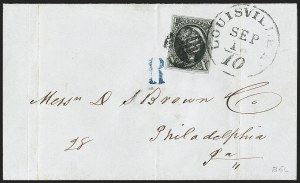 LOUISVILLE
SEP
10
R
Messrs D S Brown Co
28
Philadelphia
Pa